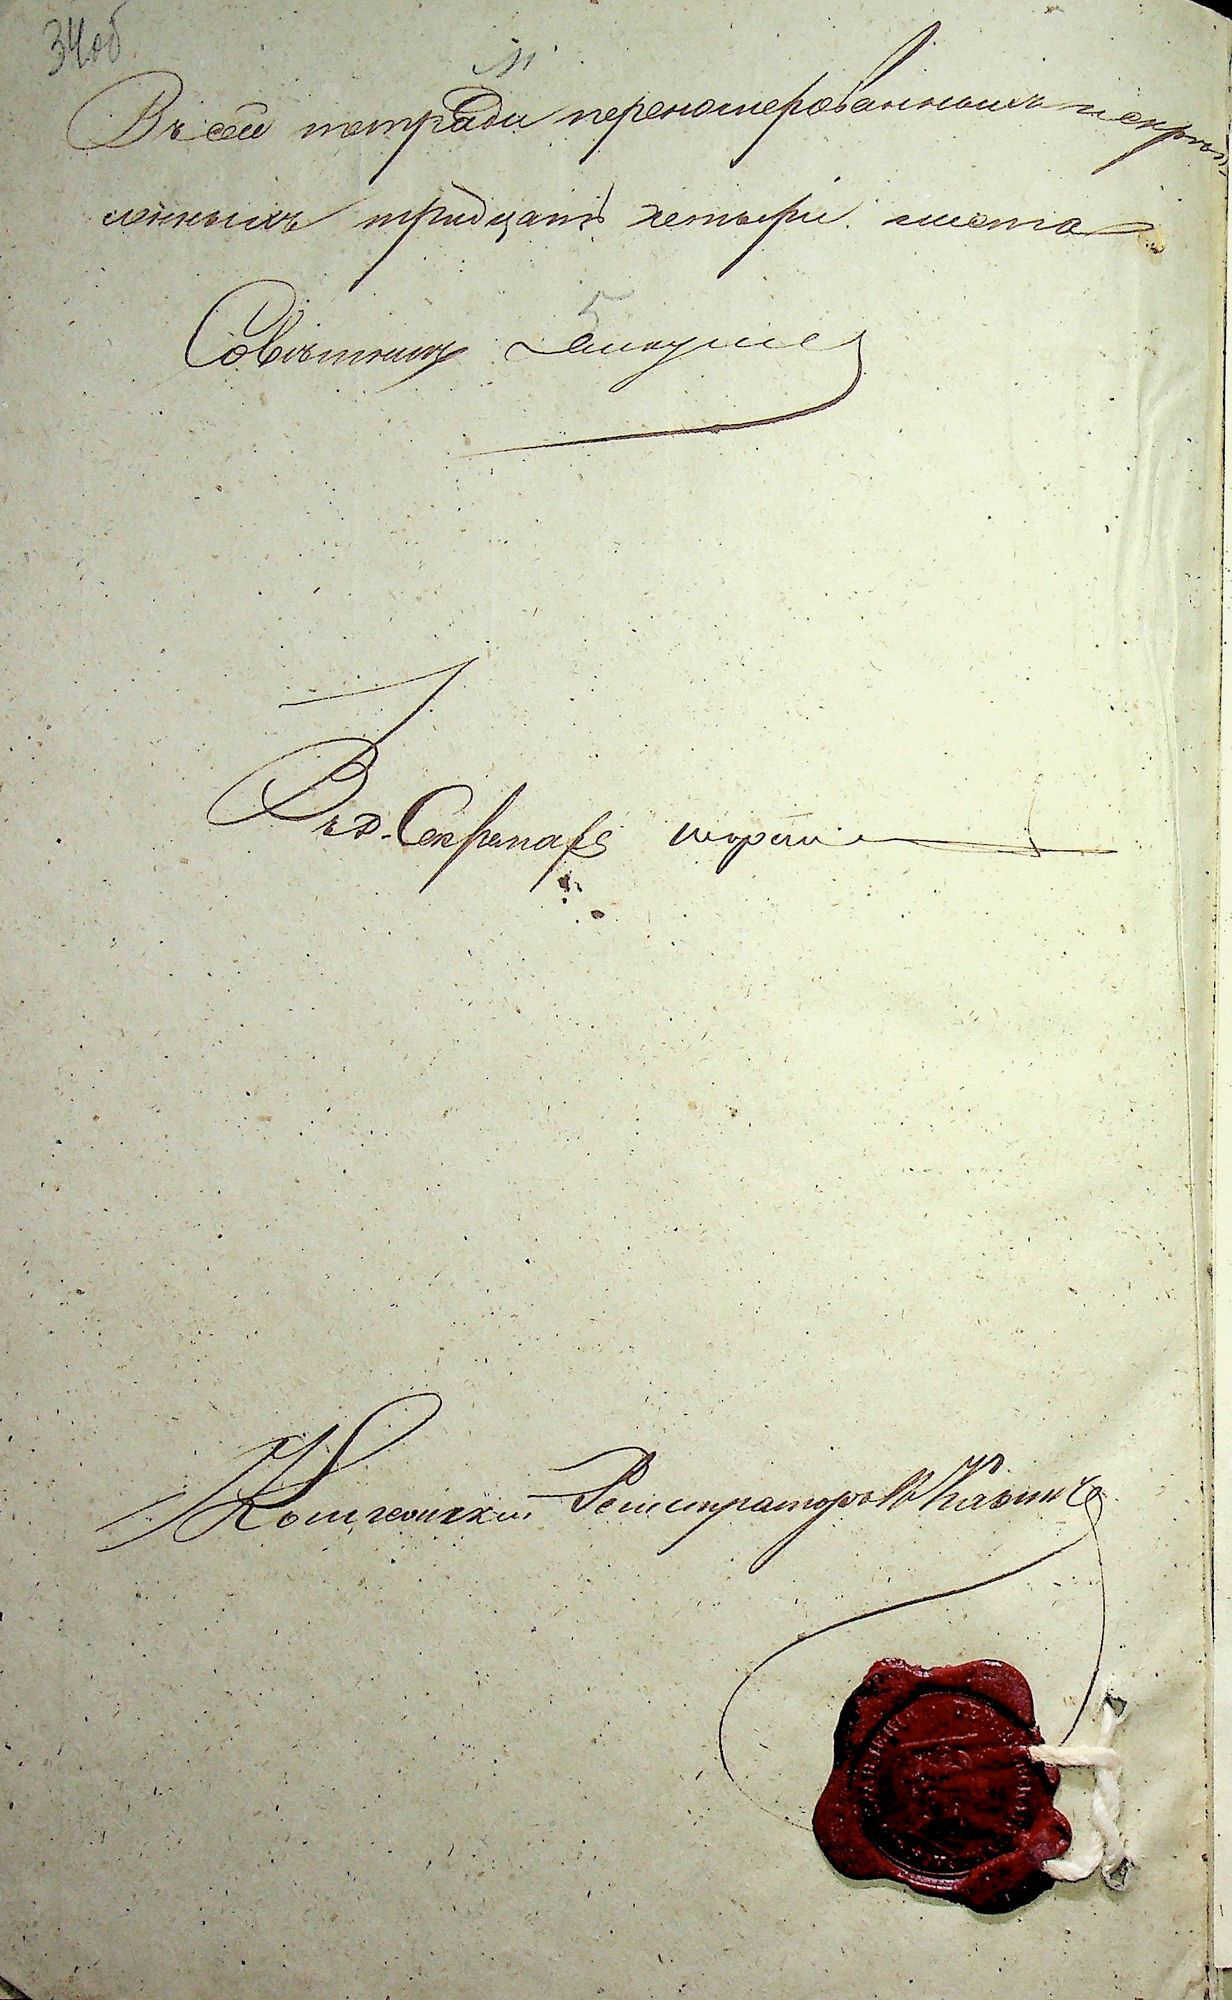 34об
Въ сей тетради переномерованныхъ и скрѣп-
ленныхъ тридцать четыри листа
Совѣтникъ
Въ д. Секретаря
Коллежскій Регистраторъ